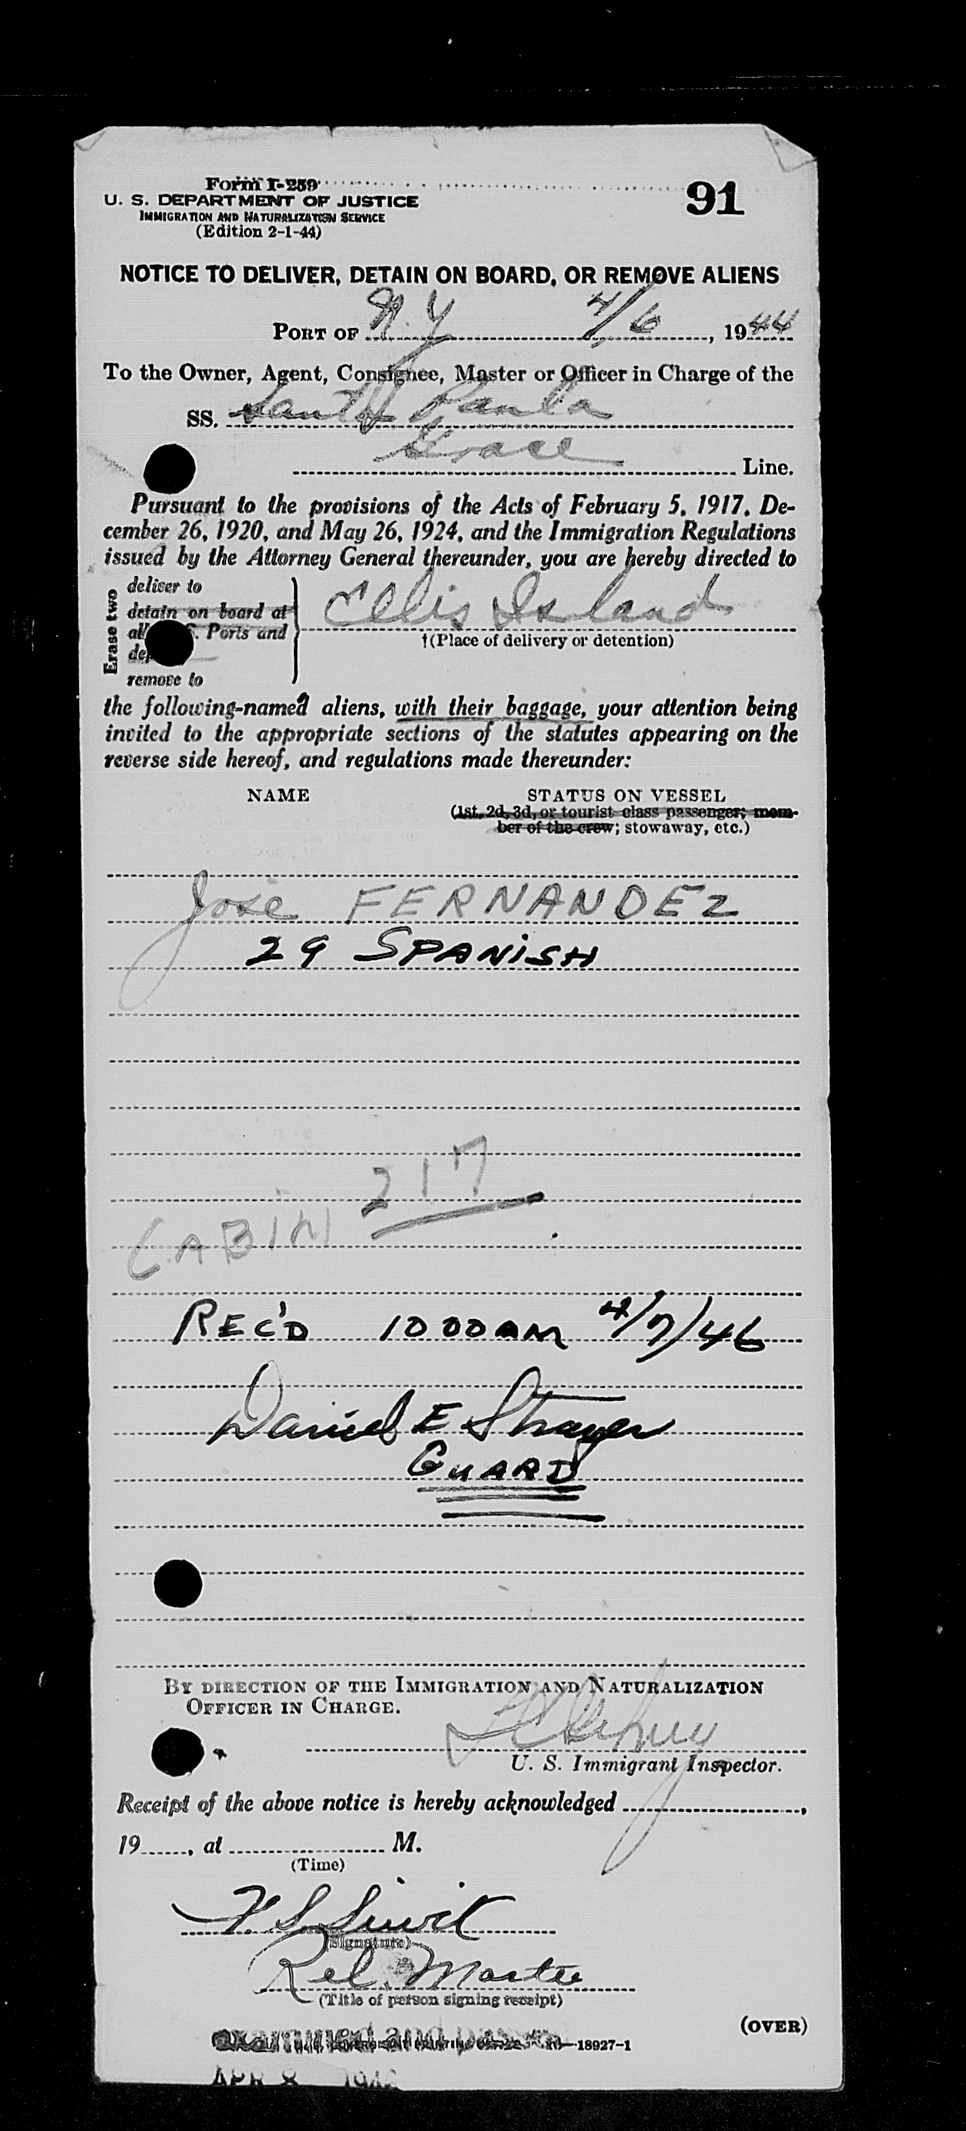 Form I-259
U. S. DEPARTMENT OF JUSTICE
IMMIGRATION AND NATURALIZATION SERVICE
(Edition 2-1-44)
91
NOTICE TO DELIVER, DETAIN ON BOARD, OR REMOVE ALIENS
PORT OF N.Y 4/6, 1944
To the Owner, Agent, Consignee, Master or Officer in Charge of the
SS. Santa Paula
Grace Line.
Pursuant to the provisions of the Acts of February 5, 1917, De-
cember 26, 1920, and May 26, 1924, and the Immigration Regulations
issued by the Attorney General thereunder, you are hereby directed to
Erase two
deliver to
detain on board at
Ports and
remove to
Ellis Island
†(Place of delivery or detention)
the following-named aliens, with their baggage, your attention being
invited to the appropriate sections of the statutes appearing on the
reverse side hereof, and regulations made thereunder:
NAME STATUS ON VESSEL
(1st, 2d, 3d, or tourist class passenger; mem-
ber of the crew; stowaway, etc.)
Jose FERNANDEZ
29 SPANISH
217
CABIN
REC'D 10 00 AM 4/7/46
Daniel E Strayer
GUARD
BY DIRECTION OF THE IMMIGRATION AND NATURALIZATION
OFFICER IN CHARGE.
U. S. Immigrant Inspector.
Receipt of the above notice is hereby acknowledged ,
19 , at M.
(Time)
(Signature)
(Title of person signing receipt)
(OVER)
18927-1
APR 8